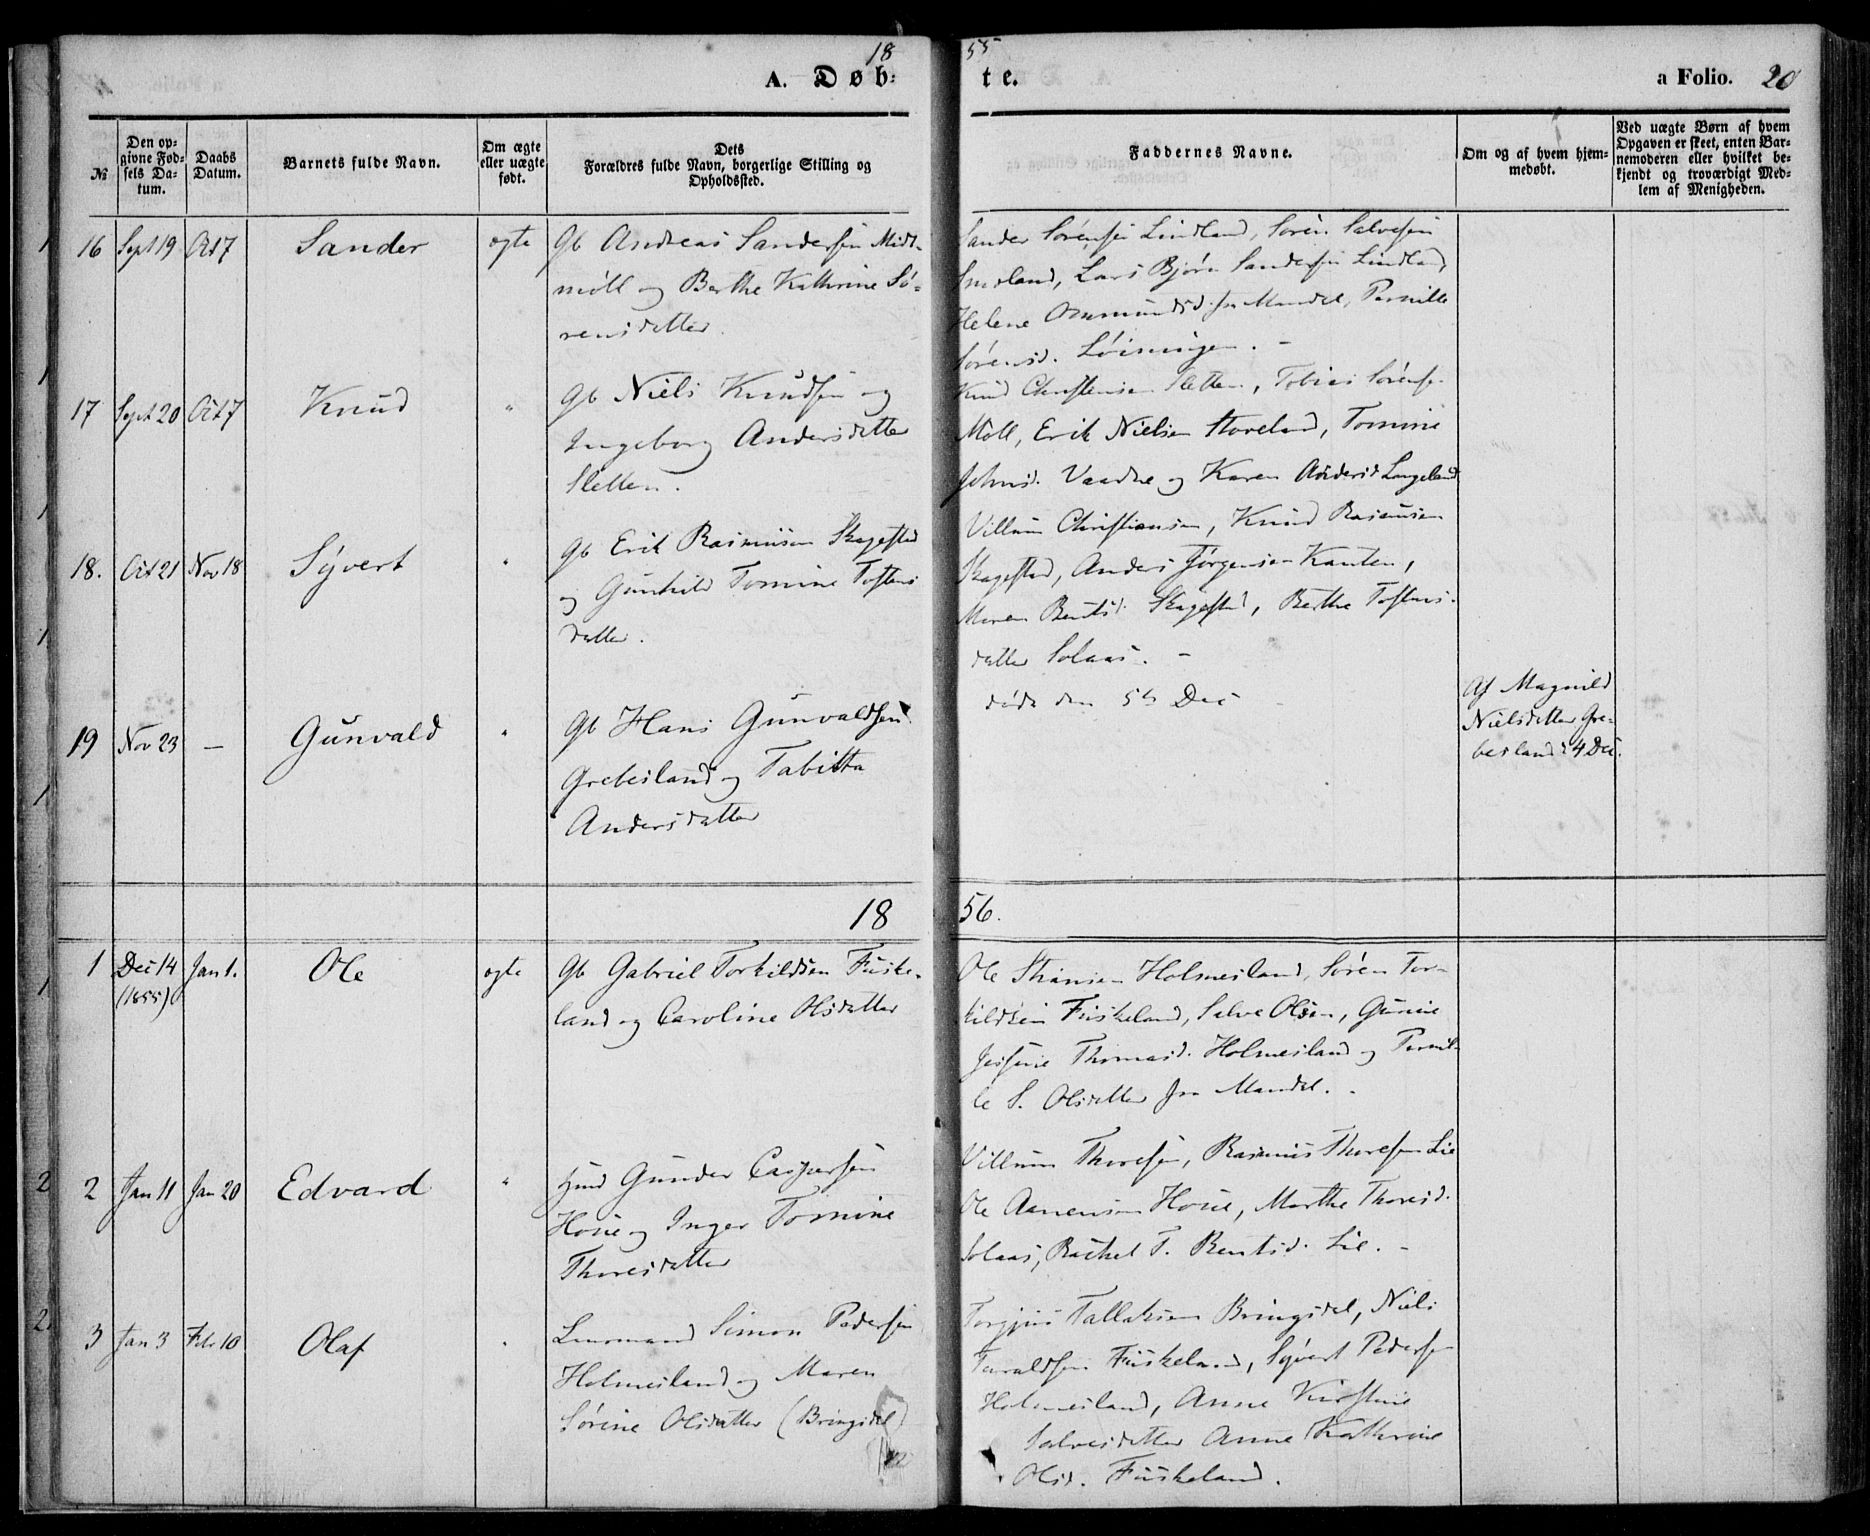 18 55
A. Døb: te.
a Folio. 20
№
Den op-
givne Fød-
sels Da-
tum.
Daabs
Datum.
Barnets fulde Navn.
Om ægte
eller uægte
født.
Dets
Forældres fulde Navn, borgerlige Stilling og
Opholdssted.
Faddernes Navne.
Om og af hvem hjem-
medøbt.
Ved uægte Børn af hvem
Opgaven er skeet, enten Bar-
nemoderen eller hvilket be-
kjendt og troværdigt Med-
lem af Menigheden.
16 Sept 19 Oct 7 Sander ægte Gb Andreas Sandersen Midt-
møll og Berthe Kathrine Sø-
rensdatter
Sander Sørensen Lindland, Søren Salvesen
Lars Bjørn Sandersen Lindland
Helene Osmundsd. fra Mandal, Pernille
Sørensd. Løiningen. -
17 Sept 20 Oct 7 Knud " Gb Niels Knudsen og
Ingeborg Andersdatter
Sletten.
Knud Christensen Sletten, Tobias Sørensen
Møll, Erik Nielsen Storeland, Tomine
Johnsd. Vaadne og Karen Andersd Langeland
18. Oct 21 Nov 18 Syvert " Gb Erik Rasmussen Skagestad
og Gunhild Tomine Tostens
datter.
Villum Christiansen, Knud Rasmussen
Skagestad, Anders Jørgensen Kanten,
Maren Bentsd. Skagestad, Berthe Tostens-
datter Solaas. -
19 Nov 23 - Gunvald " Gb Hans Gunvaldsen
Grebesland og Tabitta
Andersdatter
døde den 5te Dec
Af Magnild
Nielsdatter Gre-
besland 4 Dec.
18 56.
1 Dec 14
(1855) Jan 1. Ole ægte Gb Gabriel Torkildsen Fuske-
land og Caroline Olsdatter
Ole Holmesland, Søren Tor-
kildsen Fuskeland, Salve Olsen, Gunne
Thomasd. Holmesland og Pernil-
le S. Olsdatter fra Mandal. -
2 Jan 11 Jan 20 Edvard " Gunder Caspersen
Houe og Inger Tomine
Thoresdatter
Villum Thoresen, Rasmus Thoresen Lie
Ole Aanensen Houe, Marthe Thoresd.
Solaas, Rachel T. Bentsd. Lie. -
3 Jan 3 Febr 10 Olaf " Lensmand Simon Pedersen
Holmesland og Maren
Sørine Olsdatter (Bringsdal)
Torgjus Tallaksen Bringsdal, Niels
Taraldsen Fuskeland, Syvert Pedersen
Holmesland, Anne Kirstine
Salvesdatter Anne Kathrine
Olsd. Fuskeland.